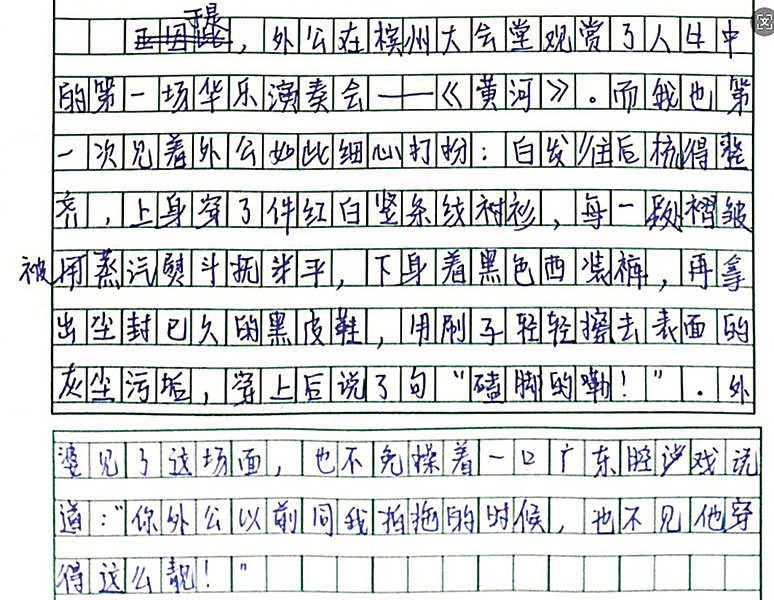 于是，外公在槟州大会堂观赏了人生中
的第一场华乐演奏会——《黄河》。而我也第
一次见着外公如此细心打扮：白发往后梳得整
齐，上身穿了件红白竖条纹衬衫，每一段褶皱
被用蒸汽熨斗抚平，下身着黑色西装裤，再拿
出尘封已久的黑皮鞋，用刷子轻轻擦去表面的
灰尘污垢，穿上后说了句“磕脚的嘞！”.外
婆见了这场面，也不免操着一口广东腔调戏说
道：“你外公以前同我拍拖的时候，也不见他穿
得这么靓！”